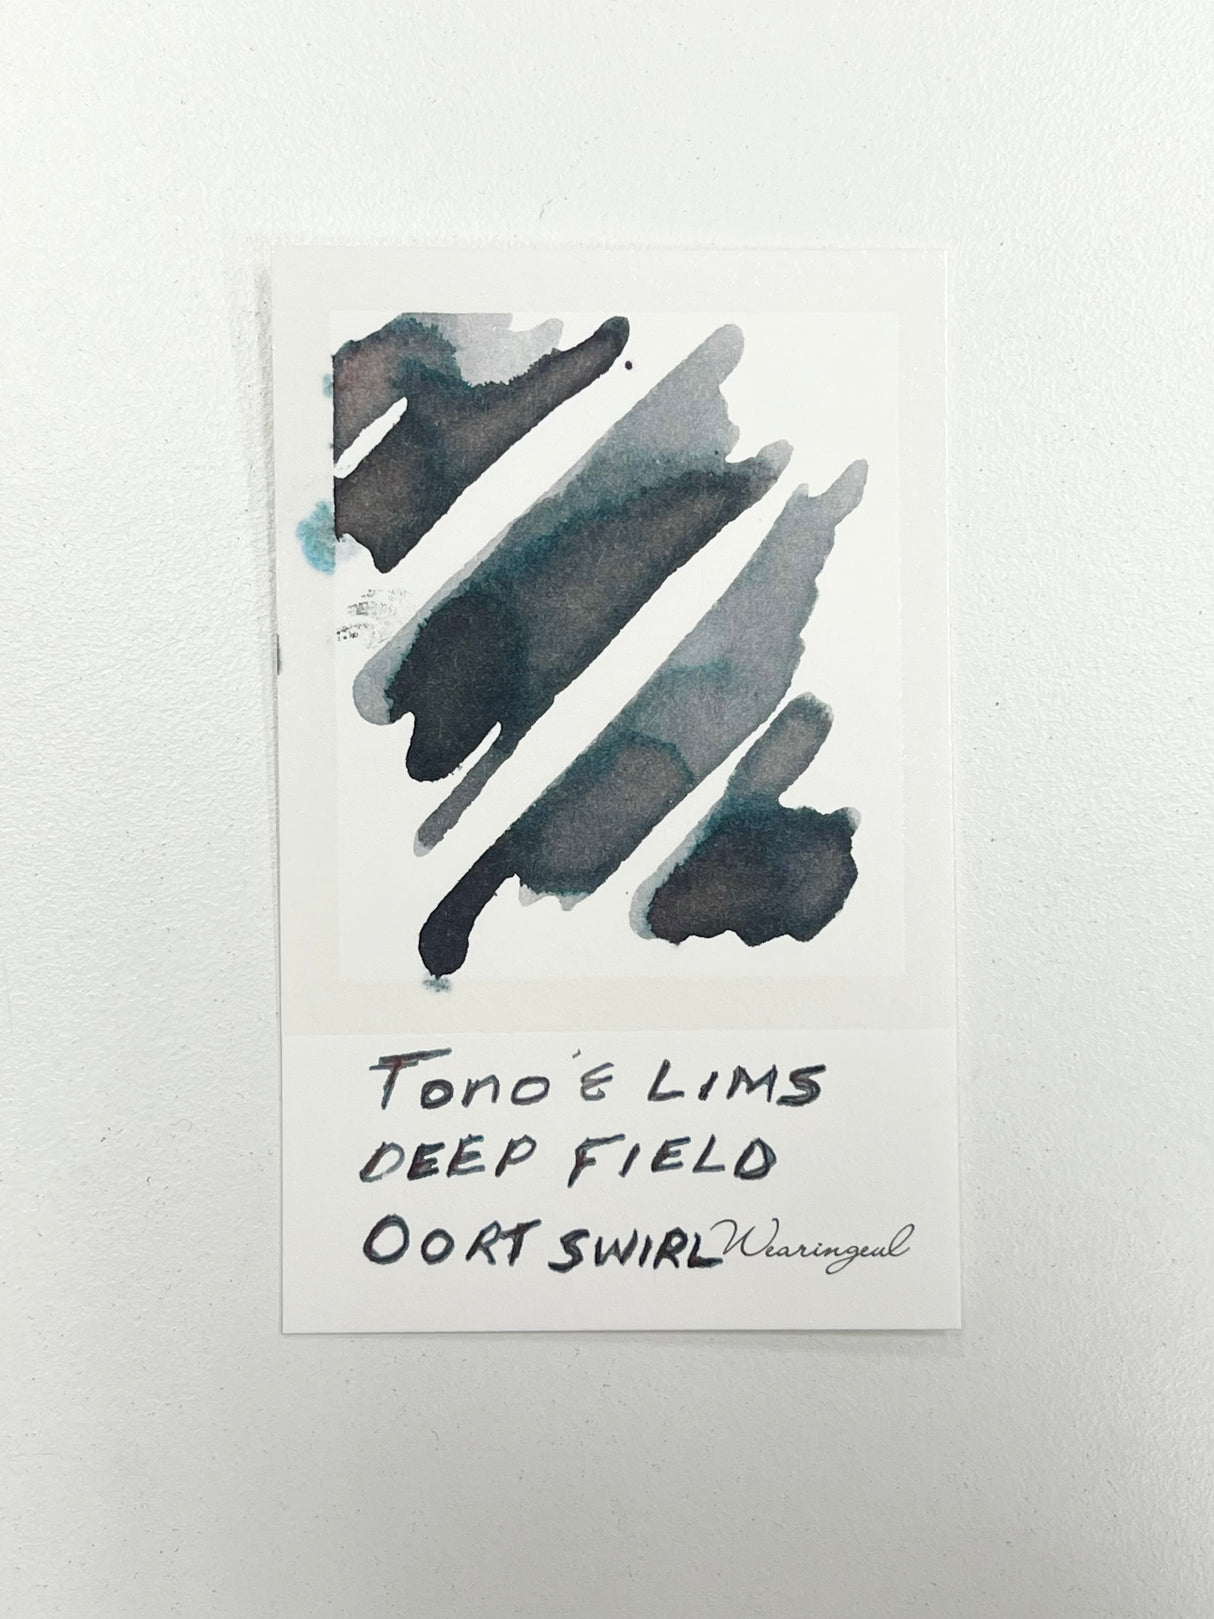 Tono & LIMS
DEEP FIELD
OORT SWIRL Wearingeul